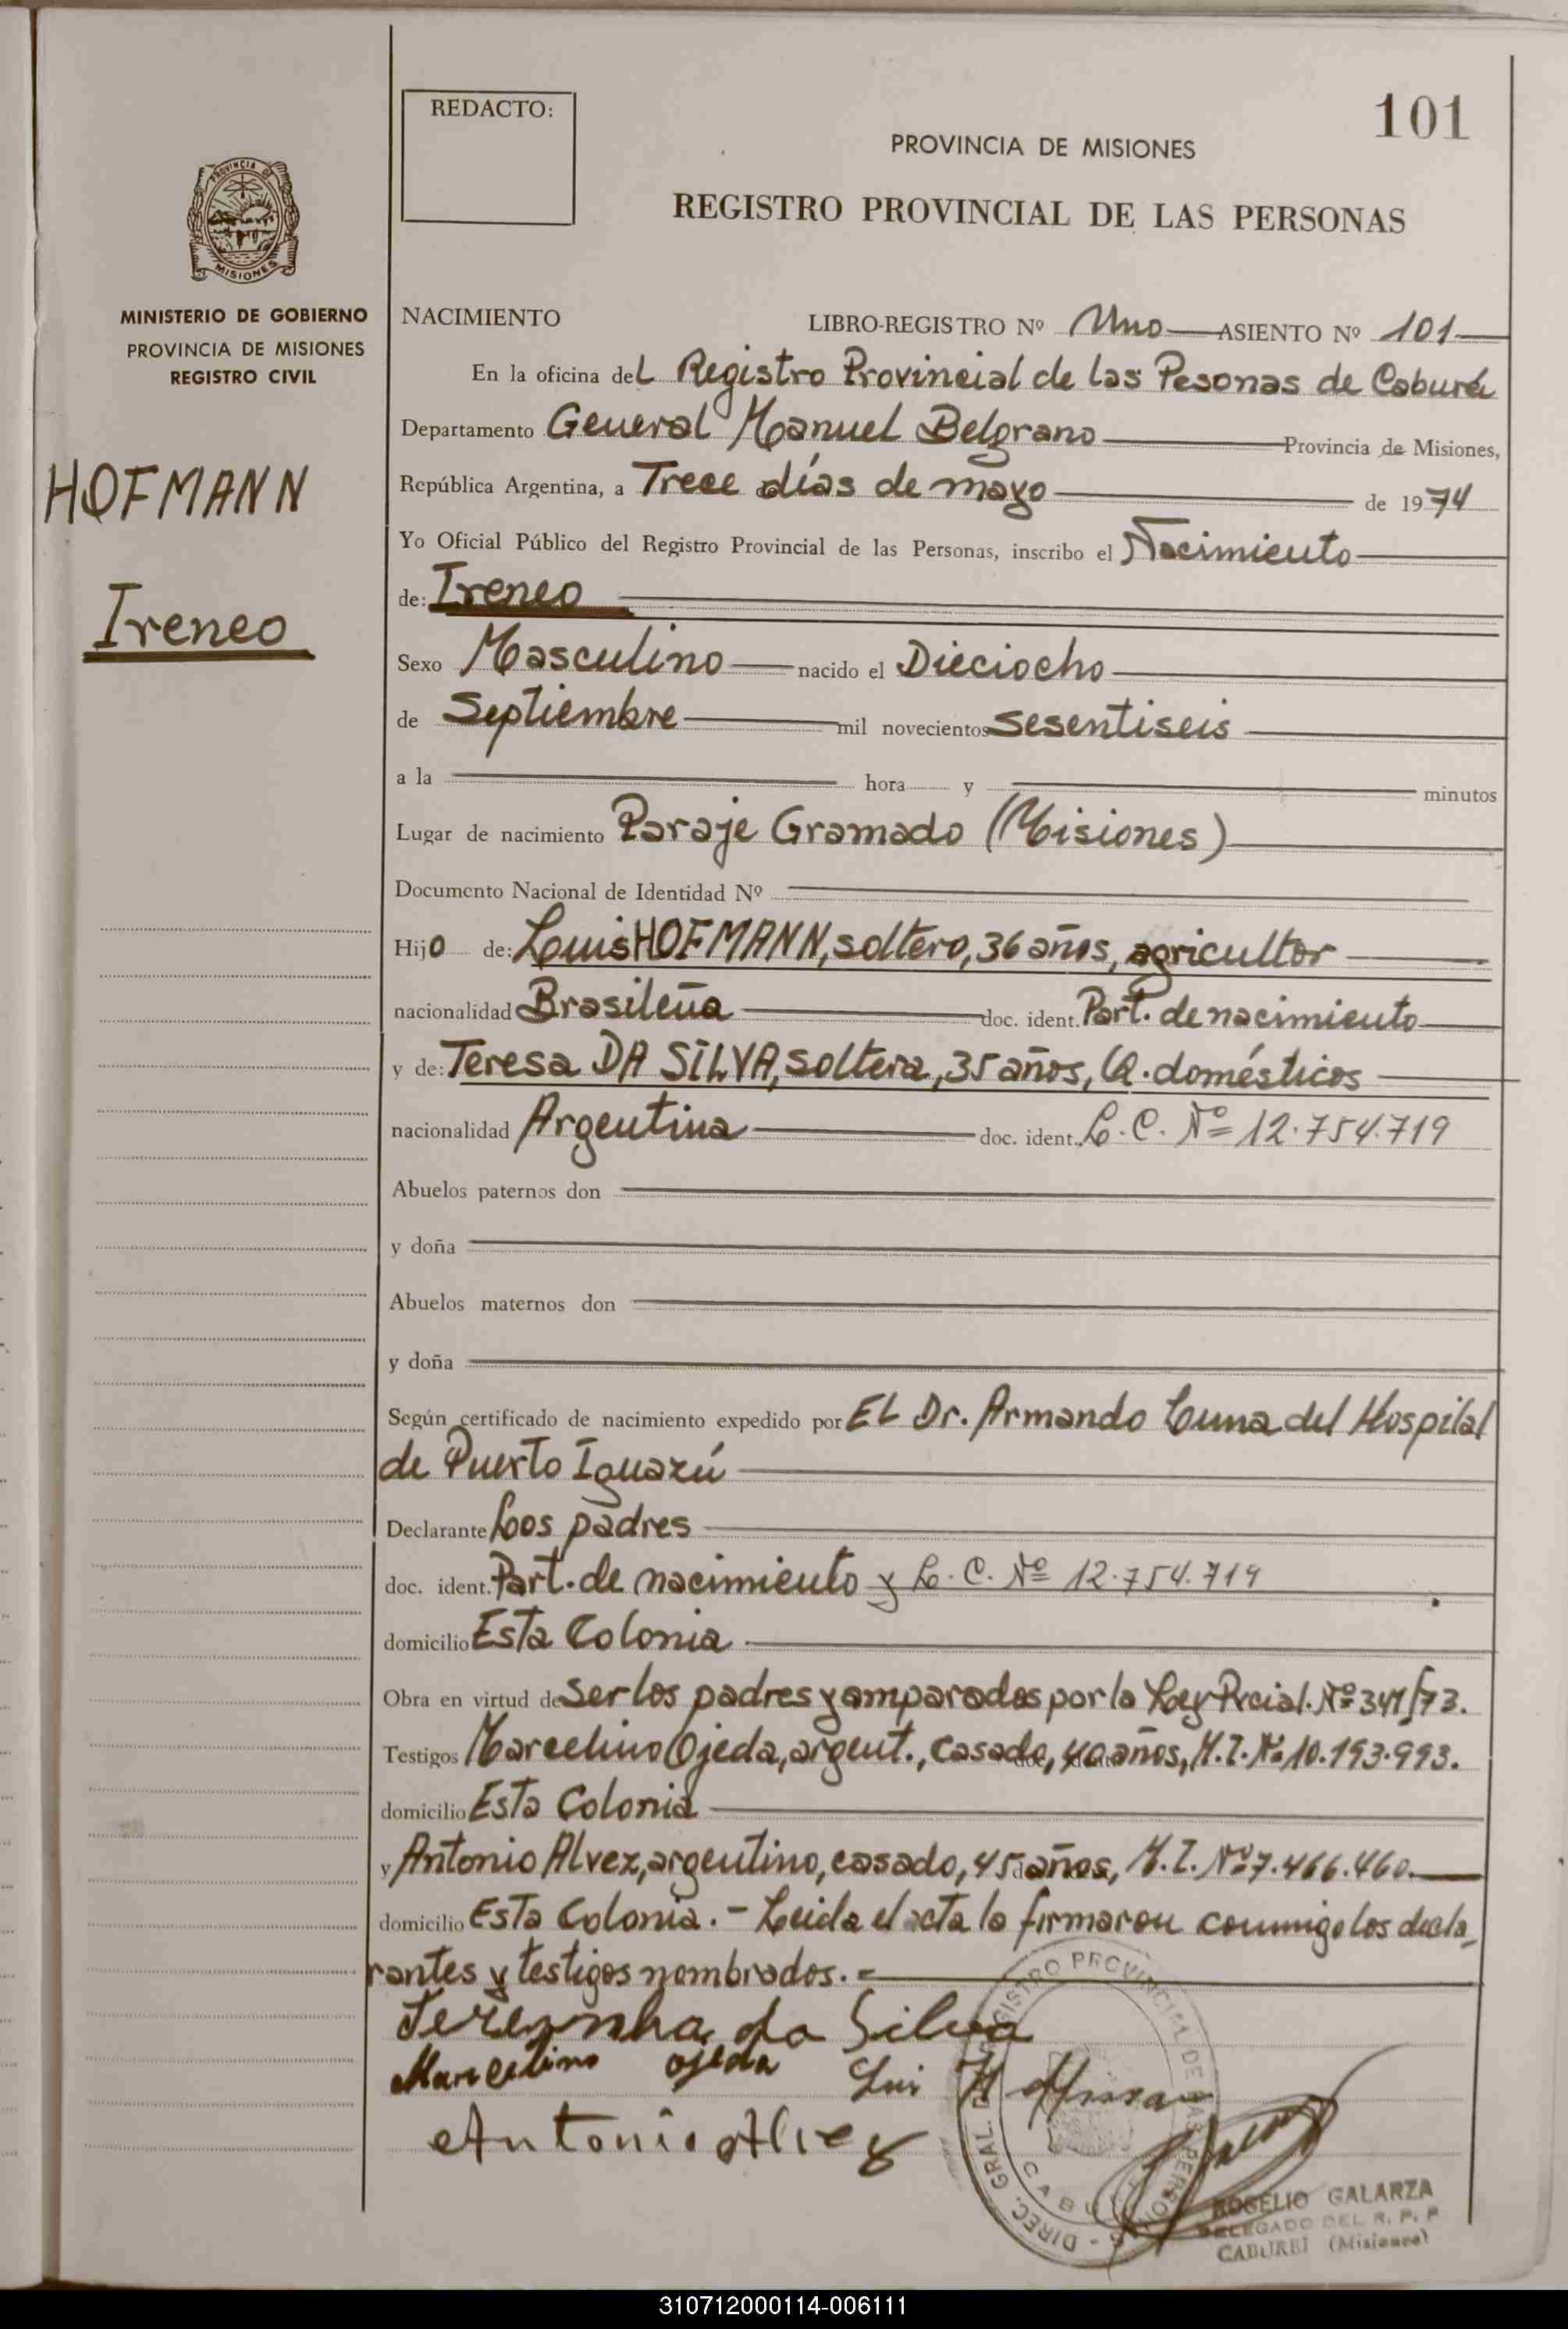 101
REDACTO:
PROVINCIA DE MISIONES
REGISTRO PROVINCIAL DE LAS PERSONAS
PROVINCIA DE
MISIONES
MINISTERIO DE GOBIERNO
PROVINCIA DE MISIONES
REGISTRO CIVIL
HOFMANN
Ireneo
NACIMIENTO LIBRO-REGISTRO Nº Uno ASIENTO Nº 101
En la oficina del Registro Provincial de las Pesonas de Caburéi
Departamento General Manuel Belgrano Provincia de Misiones,
República Argentina, a Trece días de mayo de 1974
Yo Oficial Público del Registro Provincial de las Personas, inscribo el Nacimiento
de: Ireneo
Sexo Masculino nacido el Dieciocho
de Septiembre mil novecientos Sesentiseis
a la hora y minutos
Lugar de nacimiento Paraje Gramado (Misiones)
Documento Nacional de Identidad Nº
Hijo de: Luis HOFMANN, soltero, 36 años, agricultor
nacionalidad Brasileña doc. ident. Part. de nacimiento
y de: Teresa DA SILVA, soltera, 35 años, Q. domésticos
nacionalidad Argentina doc. ident. L. C. Nº 12.754.719
Abuelos paternos don
y doña
Abuelos maternos don
y doña
Según certificado de nacimiento expedido por El Dr. Armando Luna del Hospital
de Puerto Iguazú
Declarante Los padres
doc. ident. Part. de nacimiento y L. C. Nº 12.754.719
domicilio Esta Colonia
Obra en virtud de Ser los padres y amparados por la Ley Prcial. Nº 341/73.
Testigos Marcelino Ojeda, argent., casado, 40 años, M.I. Nº 10.193.993.
domicilio Esta Colonia
y Antonio Alvez, argentino, casado, 45 años, M.I. Nº 7.466.460.
domicilio Esta Colonia. - Leida el acta la firmaron conmigo los decla_
rantes y testigos nombrados. =
Terezinha da Silva
Marcelino ojeda Lui Hoffman
Antonio Alvez
DIREC. GRAL DEL REGISTRO PROVINCIAL DE LAS PERSONAS
ROGELIO GALARZA
DELEGADO DEL R. P. P
CABUREI (Misiones)
310712000114-006111